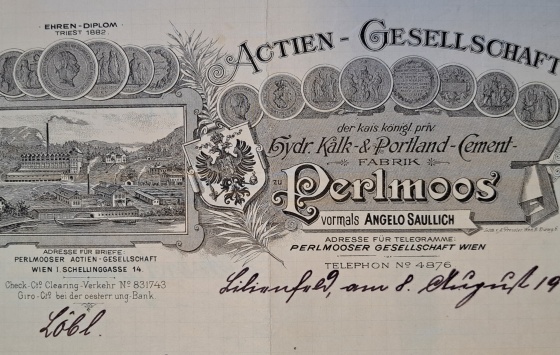 EHREN-DIPLOM
TRIEST 1882.
ACTIEN-GESELLSCHAFT
der kais königl. priv.
Hydr. Kalk-& Portland-Cement-
FABRIK
zu Perlmoos
vormals ANGELO SAULLICH
ADRESSE FÜR TELEGRAMME:
PERLMOOSER GESELLSCHAFT WIEN
TELEPHON No 4876
ADRESSE FÜR BRIEFE
PERLMOOSER ACTIEN-GESELLSCHAFT
WIEN I. SCHELLINGGASSE 14.
Check-Cto. Clearing-Verkehr No 831743
Giro-Cto. bei der oesterr ung. Bank.
Lilienfeld, am 8. August 19
Löbl.